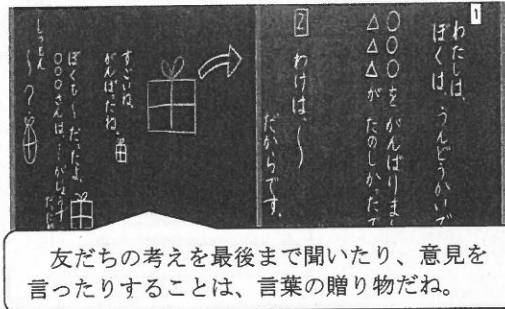 1
わたしは、
ぼくは、うんどうかいで
○○○をがんばりま
△△△がたのしかたで
2 わけは、〜
だからです。
すごいね。
がんばったね。
ぼくも〜だったよ。
○○○さんは、…がじょうず
だったね
しつもん
〜?
友だちの考えを最後まで聞いたり、意見を
言ったりすることは、言葉の贈り物だね。